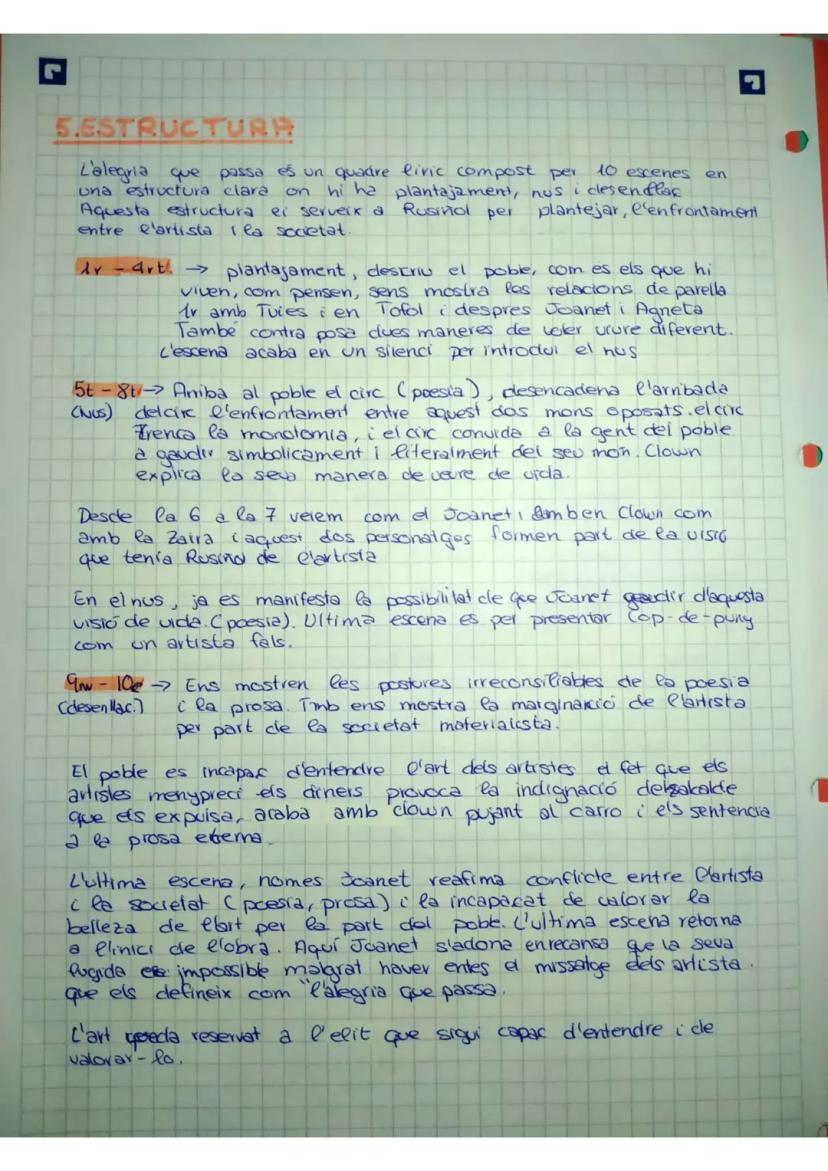 5.ESTRUCTURA
L'alegria que passa és un quadre líric compost per 10 escenes en
una estructura clara on hi ha plantajament, nus i desenllaç
Aquesta estructura ei serveix a Rusiñol per plantejar, l'enfrontament
entre l'artista i la societat.
1r - 4rt. → plantajament, descriu el poble, com es els que hi
viuen, com pensen, sens mostra les relacions de parella
1r amb Tuies i en Tofol i despres Joanet i Agneta
També contra posa dues maneres de voler viure diferent.
L'escena acaba en un silenci per introdui el nus
5t - 8t → Arriba al poble el circ (poesia), desencadena l'arribada
(Nus) delcirc l'enfrontament entre aquest dos mons oposats. el circ
Trenca la monotomia, i el circ convida a la gent del poble
a gaudir simbolicament i literalment del seu mon. Clown
explica la seva manera de veure de vida.
Desde la 6 a la 7 veiem com el Joanet i amben Clown com
amb la Zaira i aquest dos personatges formen part de la visió
que tenía Rusiñol de l'artista
En el nus, ja es manifesta la possibilitat de que Joanet gaudir d'aquesta
visió de vida. (poesia). Ultima escena es per presentar Cop-de-puny
com un artista fals.
9nv - 10e → Ens mostren les postures irreconsiliables de la poesia
(desenllac.) i la prosa. Tmb ens mostra la marginació de l'artista
per part de la societat materialista.
El poble es incapaç d'entendre l'art dels artistes el fet que els
artistes menypreci els diners provoca la indignació delsakalde
que els expulsa, acaba amb clown pujant al carro i els sentencia
a la prosa eterna.
L'ultima escena, nomes Joanet reafima conflicte entre l'artista
i la societat (poesia, prosa) i la incapacat de valorar la
belleza de l'art per la part del poble. L'ultima escena retorna
a l'inici de l'obra. Aquí Joanet s'adona enrecansa que la seva
fugida es impossible malgrat haver entes el missatge dels artista.
que els defineix com "l'alegria que passa.
L'art queda reservat a l'elit que sigui capaç d'entendre i de
valorar-lo.